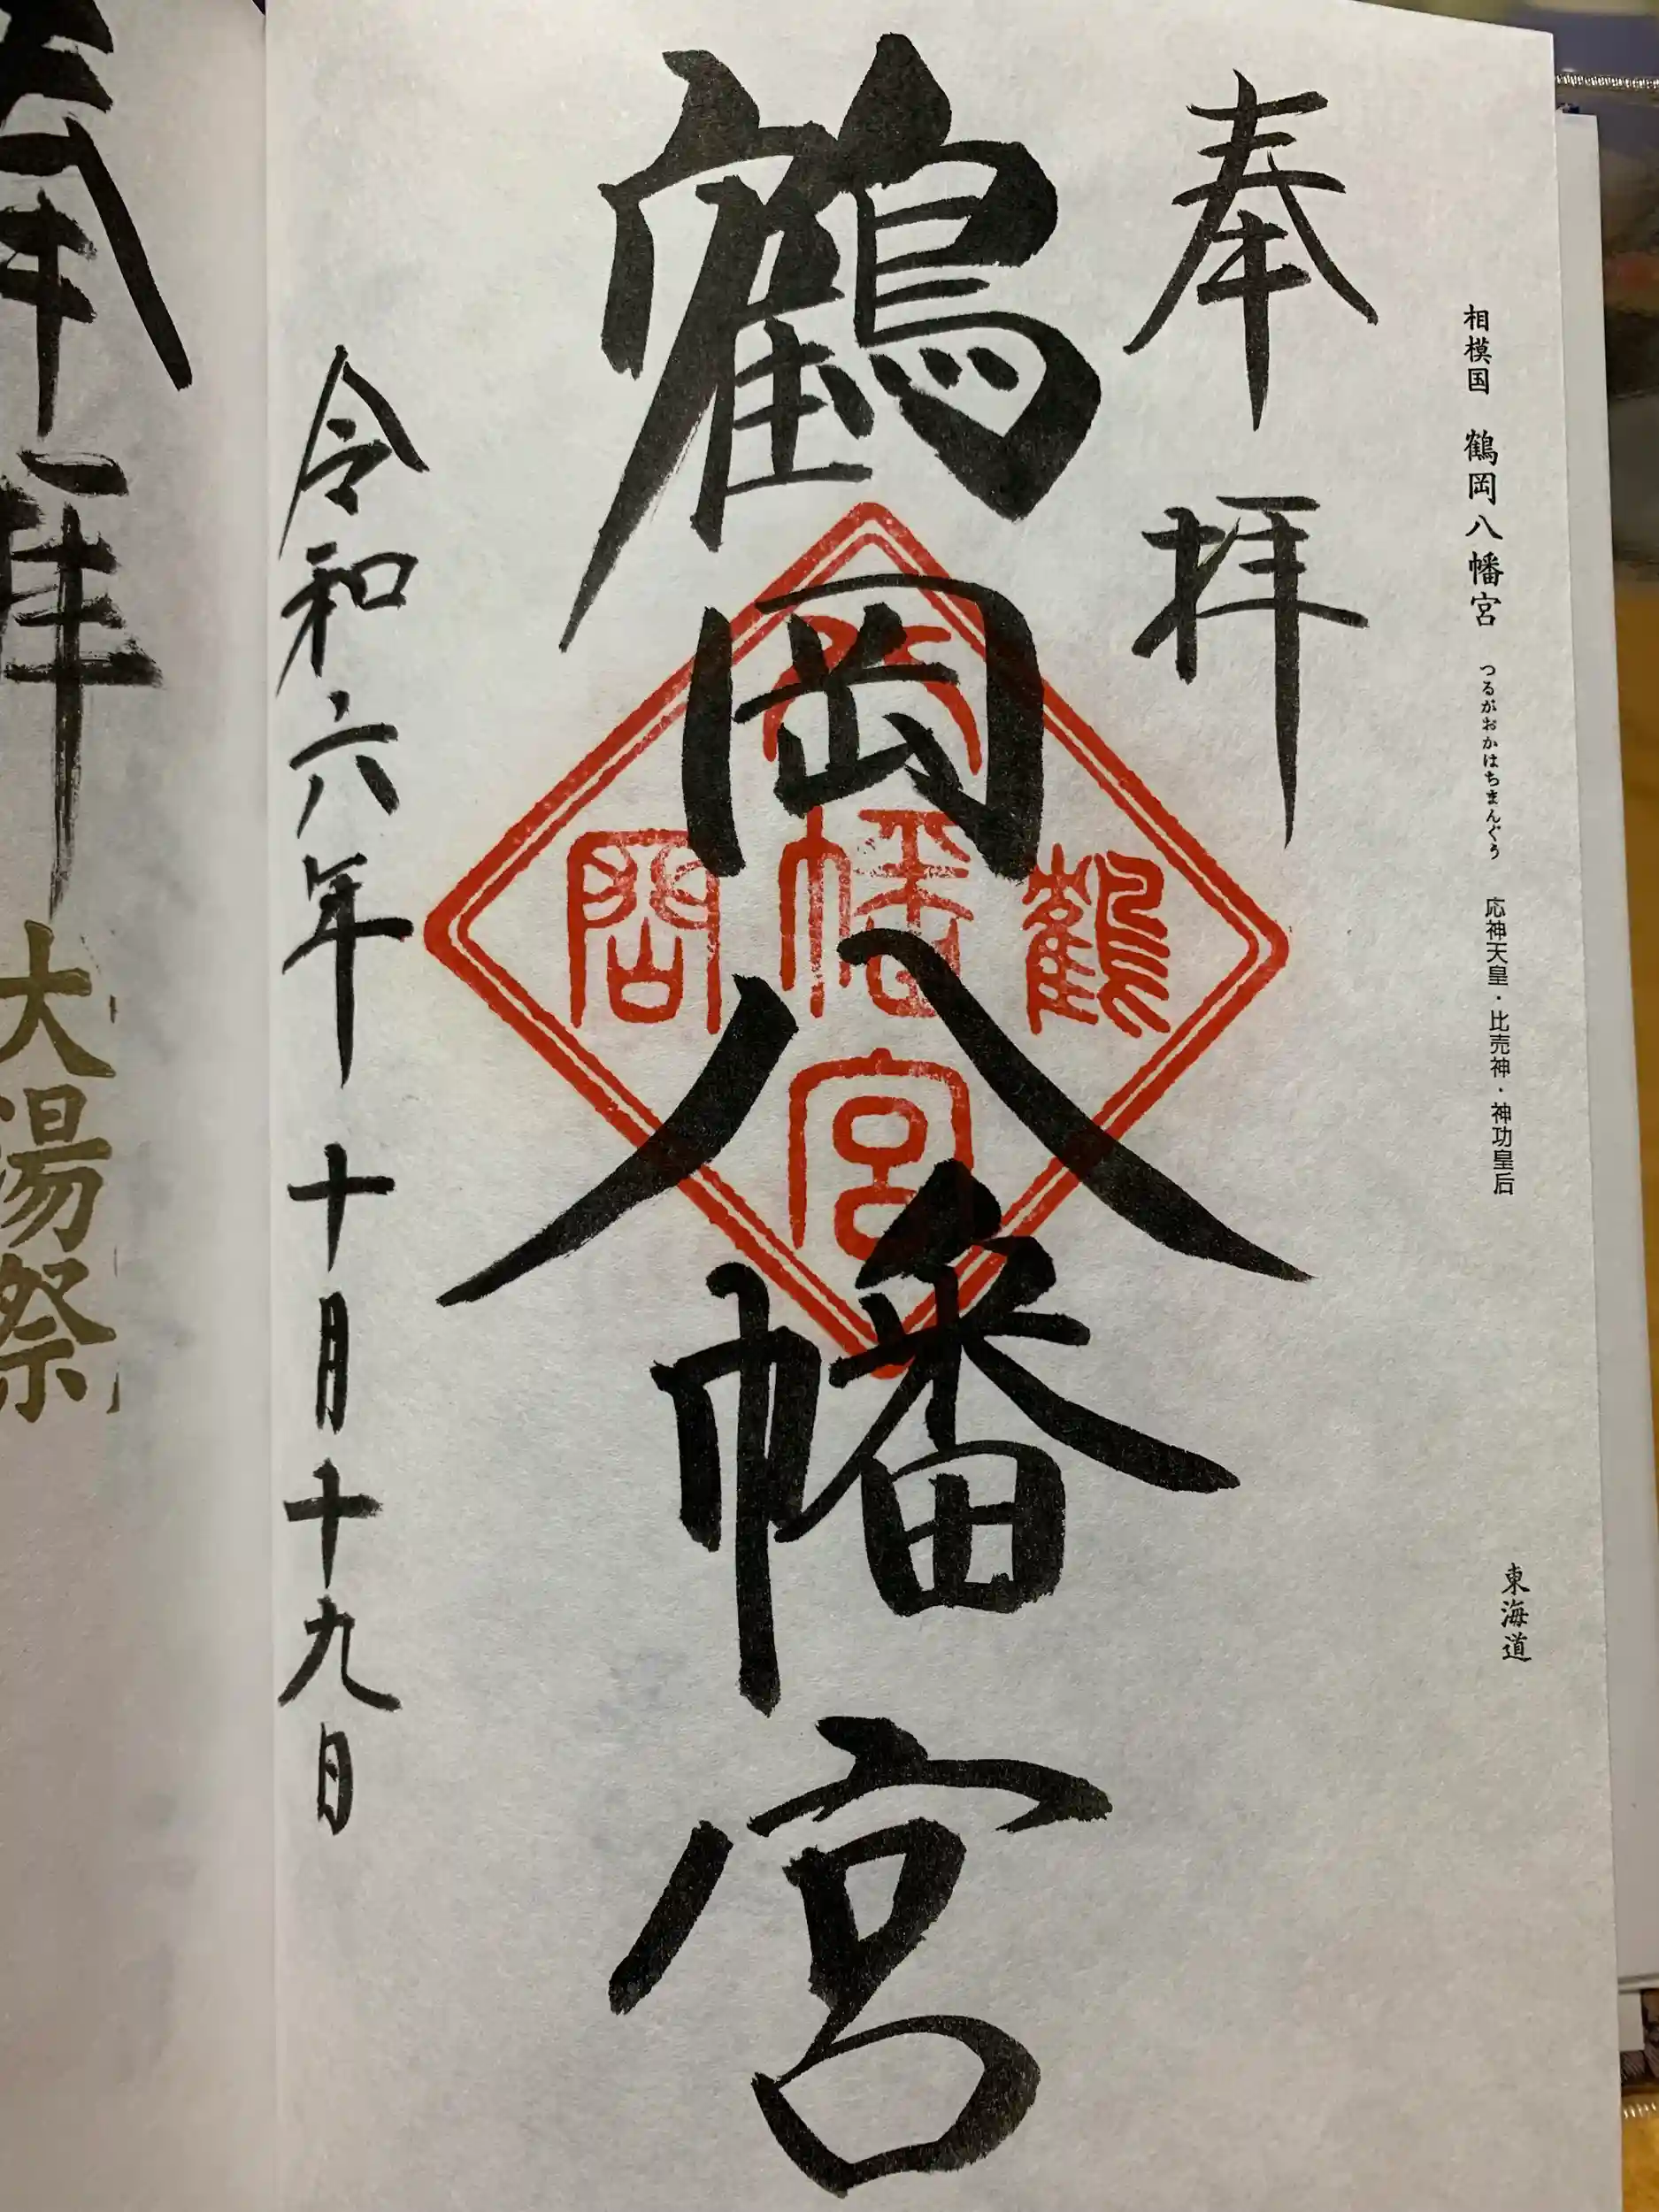 相模国 鶴岡八幡宮 つるがおかはちまんぐう 応神天皇・比売神・神功皇后 東海道
奉拝
鶴岡八幡宮
鶴岡八幡宮
令和六年 十月十九日
奉拝
大湯祭